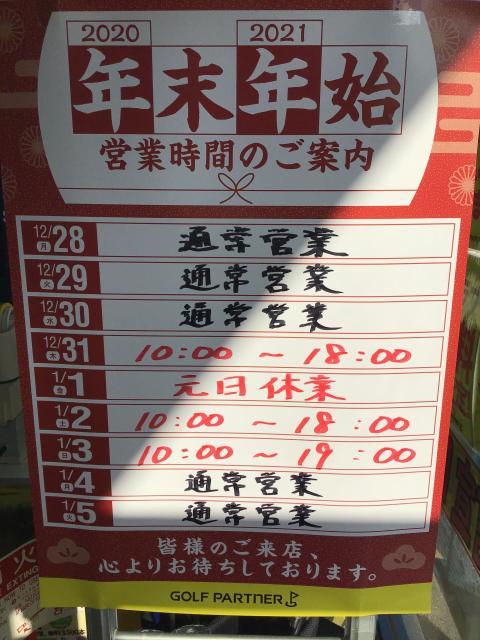 2020 2021
年末年始
営業時間のご案内
12/28 月 通常営業
12/29 火 通常営業
12/30 水 通常営業
12/31 木 10:00 ~ 18:00
1/1 金 元日休業
1/2 土 10:00 ~ 18:00
1/3 日 10:00 ~ 19:00
1/4 月 通常営業
1/5 火 通常営業
皆様のご来店、
心よりお待ちしております。
GOLF PARTNER
火
EXTING